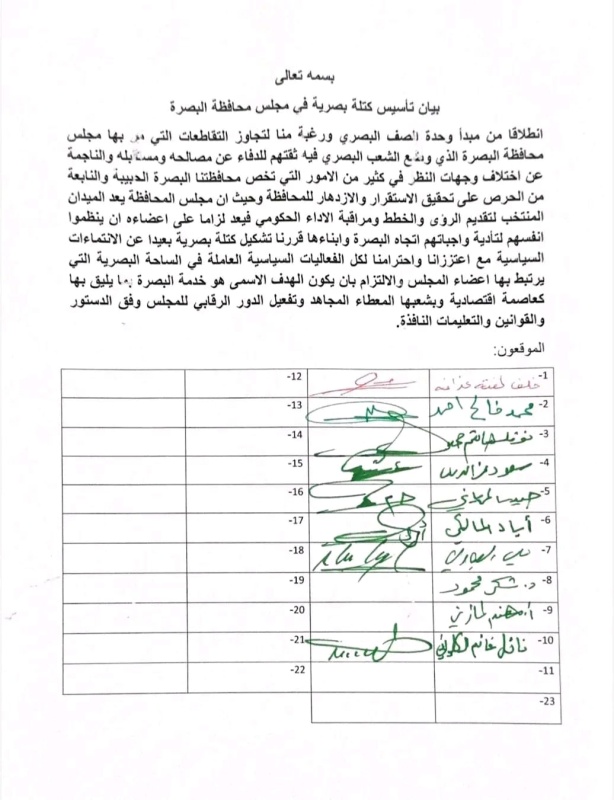 بسمه تعالى
بيان تأسيس كتلة بصرية في مجلس محافظة البصرة
انطلاقا من مبدأ وحدة الصف البصري ورغبة منا لتجاوز التقاطعات التي بها مجلس
محافظة البصرة الذي وضع الشعب البصري فيه ثقتهم للدفاع عن مصالحه ومستقبله والناجمة
عن اختلاف وجهات النظر في كثير من الامور التي تخص محافظتنا البصرة الحبيبة والنابعة
من الحرص على تحقيق الاستقرار والازدهار للمحافظة وحيث ان مجلس المحافظة يعد الميدان
المنتخب لتقديم الرؤى والخطط ومراقبة الاداء الحكومي فيعد لزاما على اعضاءه ان ينظموا
انفسهم لتأدية واجباتهم اتجاه البصرة وابناءها قررنا تشكيل كتلة بصرية بعيدا عن الانتماءات
السياسية مع اعتزازنا واحترامنا لكل الفعاليات السياسية العاملة في الساحة البصرية التي
يرتبط بها اعضاء المجلس والالتزام بان يكون الهدف الاسمى هو خدمة البصرة بما يليق بها
كعاصمة اقتصادية وبشعبها المعطاء المجاهد وتفعيل الدور الرقابي للمجلس وفق الدستور
والقوانين والتعليمات النافذة.
الموقعون:
1- خلف 12-
2- محمد فالح احمد 13-
3- 14-
4- سعود 15-
5- 16-
6- أياد المالكي 17-
7- 18-
8- د. شكر محمود 19-
9- أ. مهند المازني 20-
10- نائل غانم 21-
11- 22-
23-